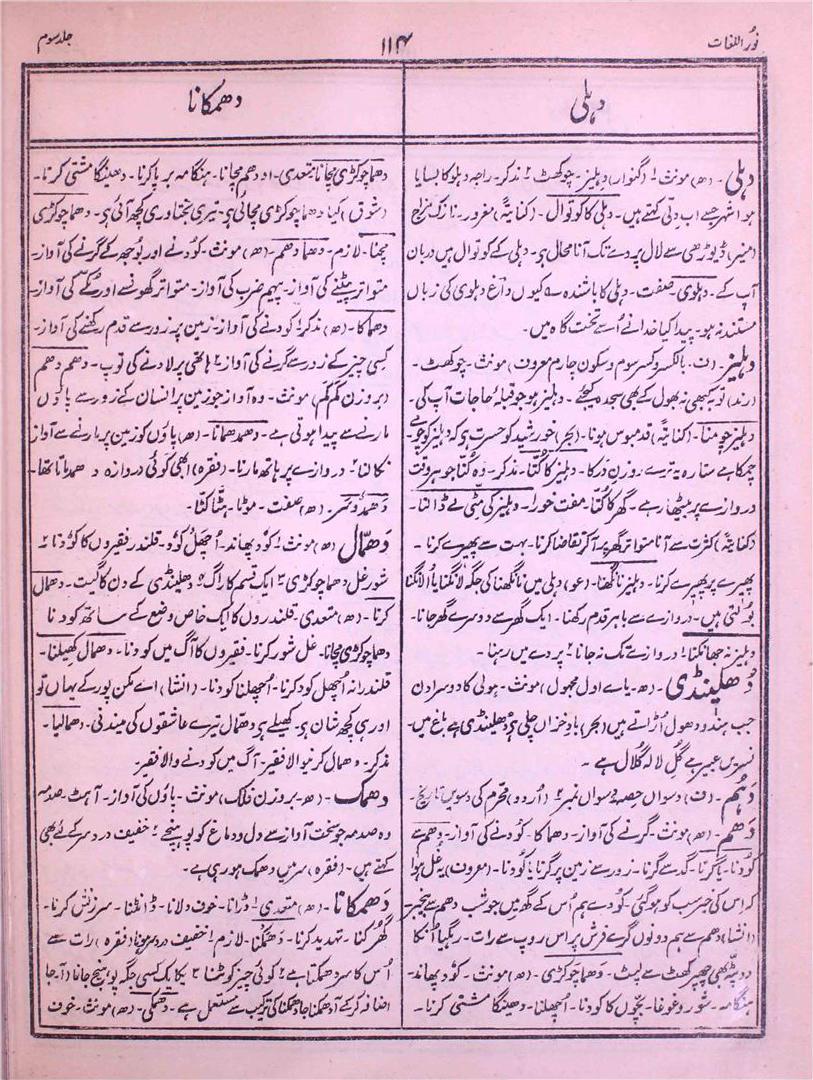 نورُ اللغات
۱۱۴
جلد سوم
دہلی
دھمکانا
دہلی۔ (ھ) مونث ۱ (گنوار) دہلیز۔ چوکھٹ ۲ مذکر۔ راجہ دہلو کا بسایا
ہوا شہر جسے اب دِلّی کہتے ہیں۔ دہلی کا کوتوال۔ (کنایۃً) مغرور۔ نازک مزاج
(منیر) ڈیوڑھی سے لال پردے تک آنا محال ہو۔ دہلی کے کوتوال ہیں دربان
آپ کے۔ دہلوی صفت۔ دہلی کا باشندہ ؎ کیوں داغ دہلوی کی زباں
مستند نہ ہو۔ پیدا کیا خدا نے اُسے تخت گاہ میں۔
دہلیز۔ (ف۔ بالکسر و کسر سوم و سکون چارم معروف) مونث۔ چوکھٹ۔
(رند) تو کبھی نہ بھول کے بھی سجدہ کیجئے۔ دہلیز ہو جو قبلۂ حاجات آپ کی۔
دہلیز چومنا۔ (کنایۃً) قدمبوس ہونا۔ (بحر) خورشید کو حسرت ہی کہ دہلیز کو چومے
چمکا ہے ستارہ یہ ترے روزنِ در کا۔ دہلیز کا کُتّا۔ مذکر۔ وہ کُتّا جو ہر وقت
دروازے پر بیٹھا رہے۔ گھر کا کُتّا۔ مفت خورا۔ دہلیز کی مٹی لے ڈالنا۔
(کنایۃً) کثرت سے آنا متواتر گھر پر آکر تقاضا کرنا۔ بہت سے پھیرے کرنا۔
پھیرے پر پھیرے کرنا۔ دہلیز نانگھنا۔ (عو) دہلی میں نانگھنا کی جگہ لانگنا یا اُلانگنا
بولتی ہیں۔ دروازے سے باہر قدم رکھنا۔ ایک گھر سے دوسرے گھر جانا۔
دہلیز نہ جھانکنا ۱ دروازے تک نہ جانا ۲ پردے میں رہنا۔
دُھلینڈی۔ (ھ۔ یاے اول مجہول) مونث۔ ہولی کا دوسرا دن
جب ہندو دھول اُڑاتے ہیں (بحر) بادِ خزاں چلی ہو دھلینڈی ہے باغ میں۔
نسریں عبیر ہے گُلِ لالہ گُلال ہے۔
دَہُم۔ (ف) دسواں حصہ دسواں نمبر ۲ (اُردو) محرم کی دسویں تاریخ۔
دَھم۔ (ھ) مونث۔ گرنے کی آواز۔ دھماکا۔ کودنے کی آواز۔ دھم سے
کودنا۔ یا گرنا۔ گد سے گرنا۔ زور سے زمین پر گرنا یا کودنا۔ (معروف) یہ غل ہوا
کہ اس کی خبر سب کو ہو گئی۔ کودے ہم اُس کے گھر میں جو شب دھم سے بےخبر۔
(انشا) دھم سے ہم دونوں گرے فرش پر اس روپ سے رات۔ رہ گیا اُن کا
دوپٹہ بھی چھپر کھٹ سے لپٹ۔ دھما چوکڑی۔ (ھ) مونث۔ کود پھاند۔
ہنگامہ۔ شور و غوغا۔ بچّوں کا کودنا۔ اُچھلنا۔ دھینگا مشتی کرنا۔
دھما چوکڑی مچانا متعدی۔ اودھم مچانا۔ ہنگامہ برپا کرنا۔ دھینگا مشتی کرنا۔
(شوق) کیا دھما چوکڑی مچائی ہو۔ تیری بختاوری کچھ آئی ہو۔ دھما چوکڑی
مچنا۔ لازم۔ دھما دھم۔ (ھ) مونث۔ کودنے اور بوجھ کے گرنے کی آواز۔
متواتر پٹنے کی آواز۔ پیہم ضرب کی آواز۔ متواتر گھونسے اور مُکّے کی آواز۔
دھماکا۔ (ھ) مذکر ۱ کودنے کی آواز۔ زمین پر زور سے قدم رکھنے کی آواز۔
کسی چیز کے زور سے گرنے کی آواز ۲ ہاتھی پر لادنے کی توپ۔ دھم دھم
(بروزن کم کم) مونث۔ وہ آواز جو زمین پر انسان کے زور سے پاؤں
مارنے سے پیدا ہوتی ہے۔ دھمدھمانا۔ (ھ) پاؤں کو زمین پر مارنے سے آواز
نکالنا ۲ دروازے پر ہاتھ مارنا۔ (فقرہ) ابھی کوئی دروازہ دھمدھماتا تھا۔
دَھم دھوسر۔ (ھ) صفت۔ موٹا۔ ہٹّا کٹّا۔
دھمّال (ھ) مونث ۱ کود پھاند۔ اُچھل کود۔ قلندر فقیروں کا کودنا ۲
شور غل دھما چوکڑی ۳ ایک قسم کا راگ ۴ دھلینڈی کے دن کا گیت۔ دھمال
کرنا۔ (ھ) متعدی۔ قلندروں کا ایک خاص وضع کے ساتھ کودنا
دھما چوکڑی مچانا۔ غل شور کرنا۔ فقیروں کا آگ میں کودنا۔ دھمال کھیلنا۔
قلندرانہ اُچھل کود کرنا۔ اُچھلنا کودنا۔ (انشا) اے مکن پور کے یہاں تو
اور ہی کچھ شان ہو۔ کھیلے ہو دھمّال تیرے عاشقوں کی میدنی۔ دھمالیا۔
مذکر۔ دھمال کرنیوالا فقیر۔ آگ میں کودنے والا فقیر۔
دھمک۔ (ھ۔ بروزن فلک) مونث۔ پاؤں کی آواز۔ آہٹ۔ صدمہ
وہ صدمہ جو سخت آواز سے دل و دماغ کو پہنچے ۲ خفیف دردِ سر کے لئے بھی
کہتے ہیں۔ (فقرہ) سر میں دھمک ہو رہی ہے۔
دَھمکانا۔ (ھ) متعدی ۱ ڈرانا۔ خوف دلانا۔ ڈانٹنا۔ سرزنش کرنا۔
گھُرکنا۔ تہدید کرنا۔ دَھمکنا۔ لازم ۱ خفیف درد سر ہونا (فقرہ) رات سے
اُس کا سر دھمکتا ہے ۲ کوئی چیز کوٹنا ۳ یکایک کسی جگہ پہنچ جانا (آ۔ جا
اضافہ کر کے آدھمکنا جا دھمکنا کی ترکیب سے مستعمل ہے۔ دھمکی۔ (ھ) مونث۔ خوف